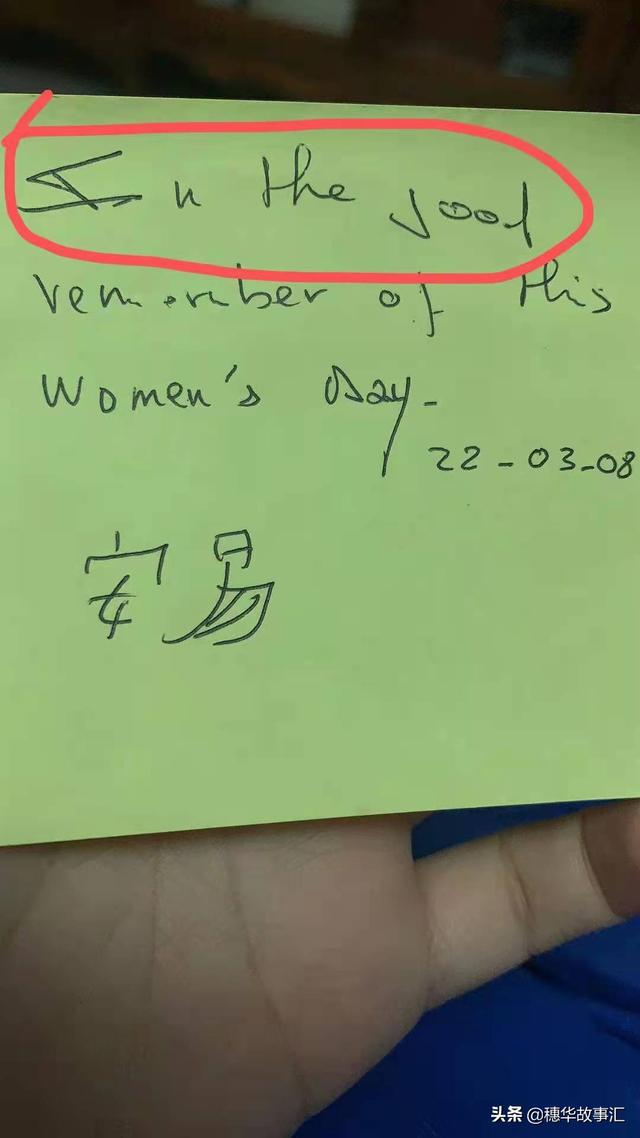 In the good
remember of this
Women's Day-
22-03-08
安易
头条 @穗华故事汇